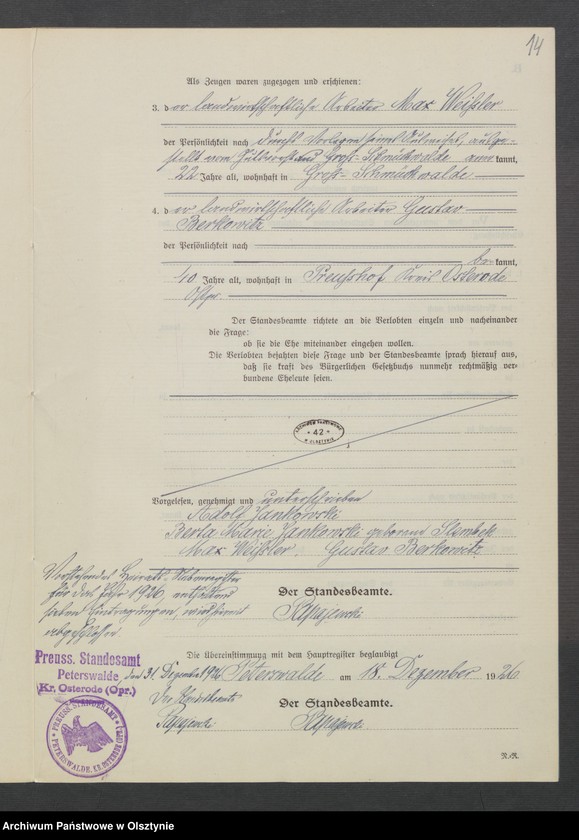 14
Als Zeugen waren zugezogen und erschienen:
3. der landwirtschaftliche Arbeiter Max Weißler
der Persönlichkeit nach durch Vorlegen seines
Groß-Schmückwalde anerkannt,
22 Jahre alt, wohnhaft in Groß-Schmückwalde
4. der landwirtschaftliche Arbeiter Gustav
Berkowitz
der Persönlichkeit nach
bekannt,
40 Jahre alt, wohnhaft in Preußhof Kreis Osterode
Ostpr.
Der Standesbeamte richtete an die Verlobten einzeln und nacheinander
die Frage:
ob sie die Ehe miteinander eingehen wollen.
Die Verlobten bejahten diese Frage und der Standesbeamte sprach hierauf aus,
daß sie kraft des Bürgerlichen Gesetzbuchs nunmehr rechtmäßig ver-
bundene Eheleute seien.
ARCHIWUM PAŃSTWOWE
* 42 *
W OLSZTYNIE
Vorgelesen, genehmigt und unterschrieben
Adolf Jankowski
Berta Marie Jankowski geborene
Max Weißler. Gustav Berkowitz
Vorstehendes Heirats-Nebenregister
für das Jahr 1926, enthaltend
sieben Eintragungen, wird hiermit
abgeschlossen
Der Standesbeamte.
Preuss. Standesamt
Peterswalde, den 31. Dezember 1926
Kr. Osterode (Opr.)
Der Standesbeamte
PREUSS. STANDESAMT
* PETERSWALDE, KR. OSTERODE (OPR.) *
Die Übereinstimmung mit dem Hauptregister beglaubigt
Peterswalde am 18. Dezember 1926
Der Standesbeamte.
Archiwum Państwowe w Olsztynie